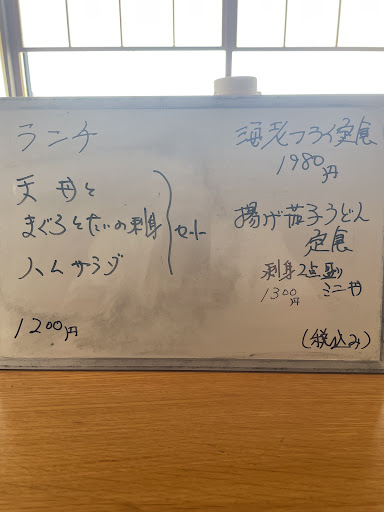 ランチ
天丼と
まぐろとたいの刺身
ハムサラダ
セット
1200円
海老フライ定食
1980円
揚げ茄子うどん
定食
刺身2点盛り
ミニ丼
1300円
(税込み)